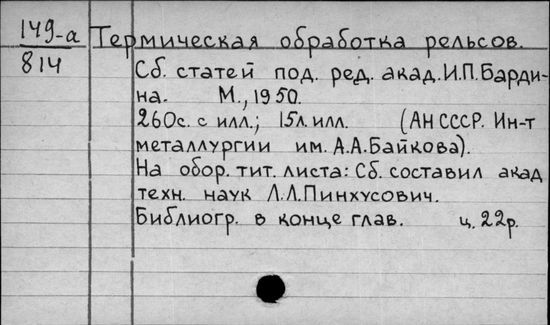 149-а Термическая обработка рельсов.
814
Сб. статей под. ред. акад. И.П. Барди-
на. М., 1950.
260с. с илл.; 15л. илл. (АН СССР. Ин-т
металлургии им. А.А. Байкова).
На обор. тит. листа: Сб. составил акад
техн. наук Л.Л. Пинхусович.
Библиогр. в конце глав. ц. 22р.